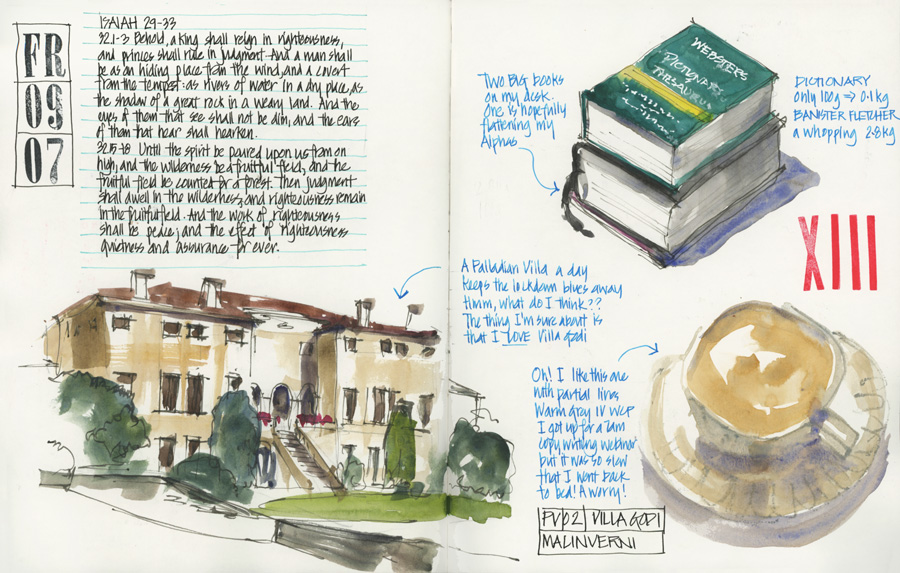 FR
09
07
ISAIAH 29-33
32.1-3 Behold, a king shall reign in righteousness,
and princes shall rule in judgment. And a man shall
be as an hiding place from the wind, and a covert
from the tempest: as rivers of water in a dry place, as
the shadow of a great rock in a weary land. And the
eyes of them that see shall not be dim, and the ears
of them that hear shall hearken.
32.15-18 Until the spirit be poured upon us from on
high, and the wilderness be a fruitful field, and the
fruitful field be counted for a forest. Then judgment
shall dwell in the wilderness, and righteousness remain
in the fruitful field. And the work of righteousness
shall be peace; and the effect of righteousness
quietness and assurance for ever.
TWO BIG books
on my desk.
One is hopefully
flattening my
Alphas
WEBSTERS
DICTIONARY
THESAURUS
DICTIONARY
only 100g ⇒ 0.1kg
BANISTER FLETCHER
a whopping 2.8kg
XIII
A Palladian Villa a day
keeps the lockdown blues away
Hmm, what do I think??
The thing I'm sure about is
that I LOVE Villa Godi
Oh! I like this one
with partial lines
Warm Grey IV WCP
I got up for a 7am
copy writing webinar
but it was so slow
that I went back
to bed! A worry!
PVP2 VILLA GODI
MALINVERNI